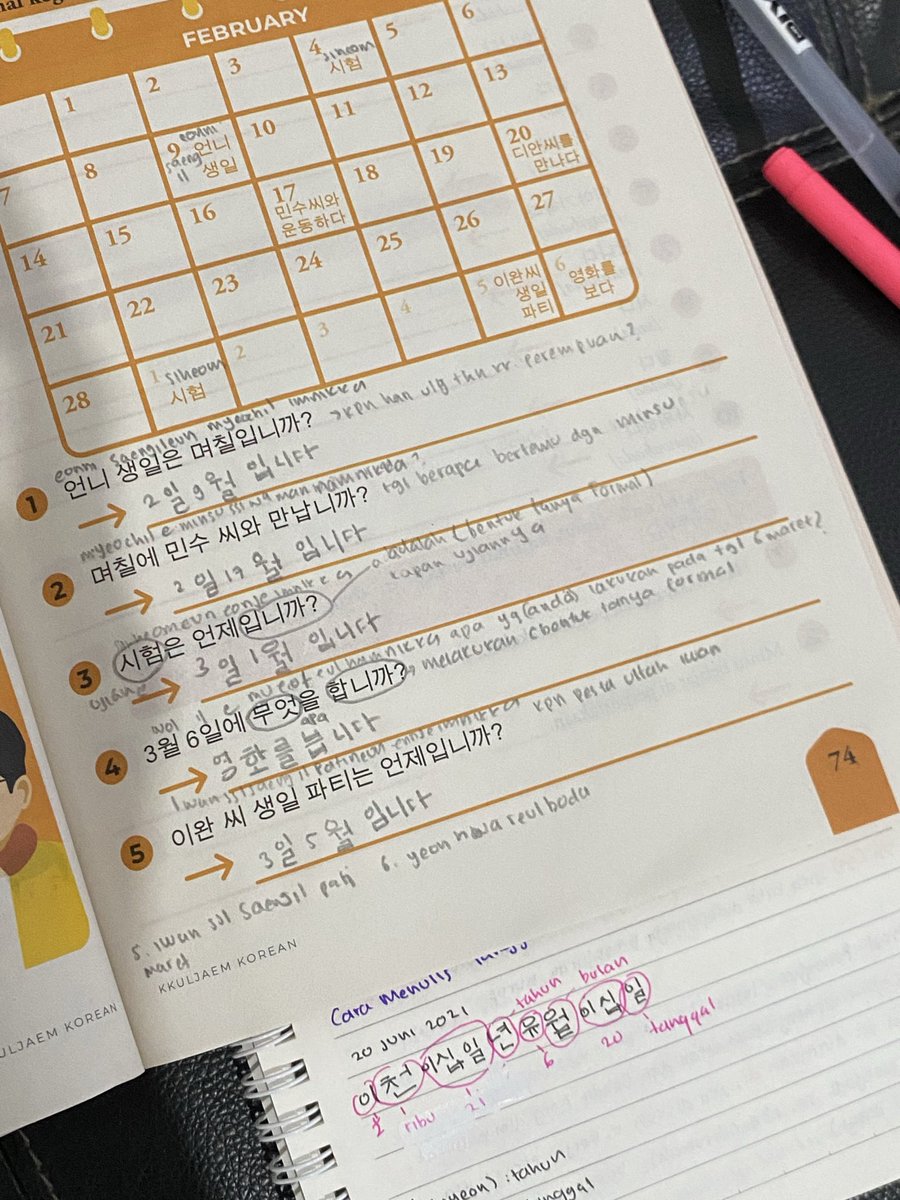 FEBRUARY
1 2 3 4 siheom 시험 5 6
7 8 9 eonni 언니 saeng il 생일 10 11 12 13
14 15 16 17 민수씨와 운동하다 18 19 20 디안씨를 만나다
21 22 23 24 25 26 27
28 1 siheom 시험 2 3 4 5 이완씨 생일 파티 6 영화를 보다
eonni saengileun myeochil imnikka
1 언니 생일은 며칠입니까? kpn hari ulg thn kk. perempuan?
→ 2일 9월 입니다
myeochil e minsu ssi wa mannamnikka?
2 며칠에 민수 씨와 만납니까? tgl berapa bertemu dgn minsu
→ 2일 17월 입니다
siheomeun eonje imnikka adalah (bentuk tanya formal)
3 시험은 언제입니까? kapan ujiannya
ujian → 3일 1월 입니다
wol il e mueoteul hamnikka apa yg (anda) lakukan pada tgl 6 maret?
4 3월 6일에 무엇을 합니까? melakukan (bentuk tanya formal
apa
→ 영화를 봅니다
iwan ssi saeng il patineun eonje imnikka kpn pesta ultah iwan
5 이완 씨 생일 파티는 언제입니까?
→ 3일 5월 입니다
74
5. iwan ssi saengil pati 6. yeonhwa reul boda
maret
KKULJAEM KOREAN
KULJAEM KOREAN
Cara Menulis
tahun bulan
20 JUNI 2021
이천이십일 년 유월 이십일
2 ribu 21 6 20 tanggal
yeon) : tahun